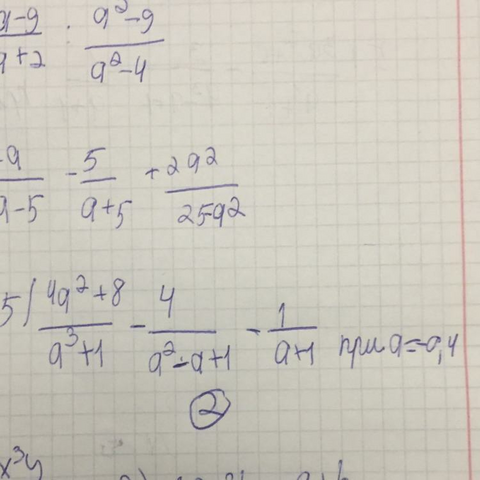 a-9/a+2 · a²-9/a²-4
a/a-5 - 5/a+5 + 2a²/25-a²
5) 4a²+8/a³+1 - 4/a²-a+1 - 1/a+1 при a=-0,4
2
x³y